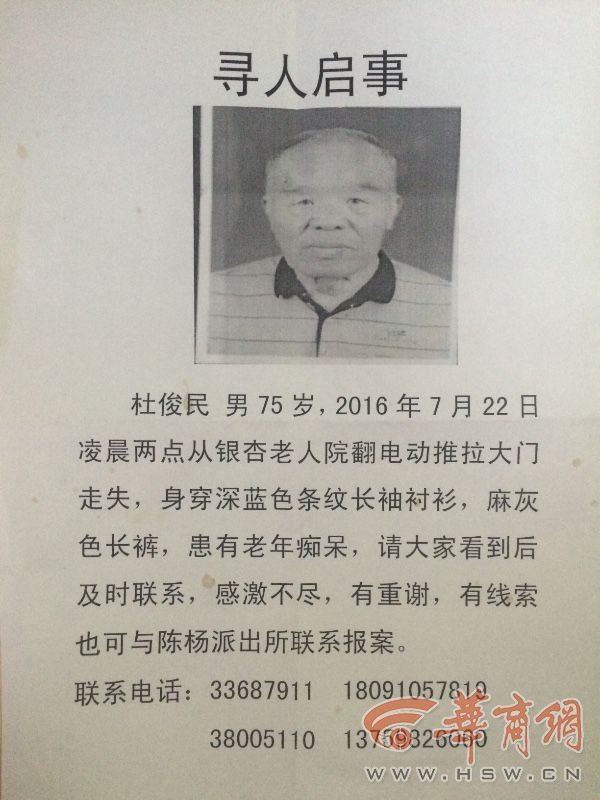 寻人启事
杜俊民 男75岁，2016年7月22日
凌晨两点从银杏老人院翻电动推拉大门
走失，身穿深蓝色条纹长袖衬衫，麻灰
色长裤，患有老年痴呆，请大家看到后
及时联系，感激不尽，有重谢，有线索
也可与陈杨派出所联系报案。
联系电话：33687911 18091057819
38005110
華商網
WWW.HSW.CN